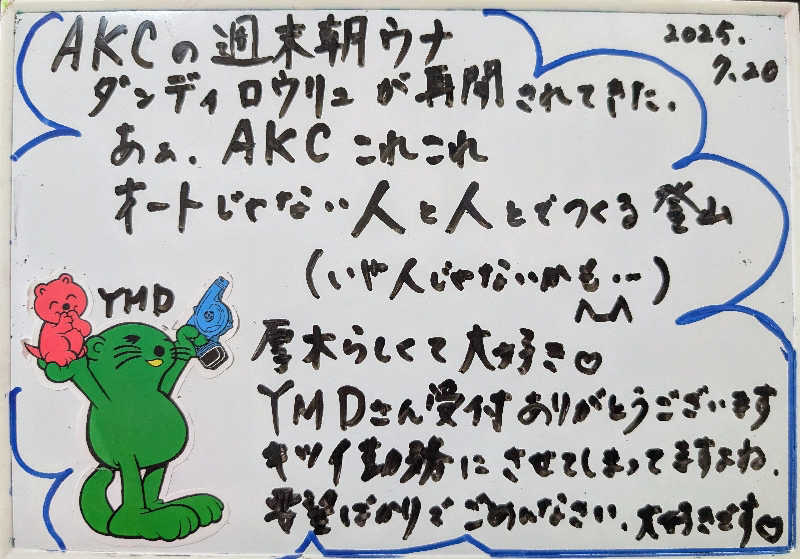 AKCの週末朝ウナ
2025.
7.20
ダンディロウリュが再開されてきた。
あぁ、AKCこれこれ
オートじゃない人と人とでつくる登山
(いや人じゃないかも…)
YMD
厚木らしくて大好き♡
YMDさん受付ありがとうございます
キツイ勤務にさせてしまってますよね、
要望ばかりでごめんなさい、大好きです♡